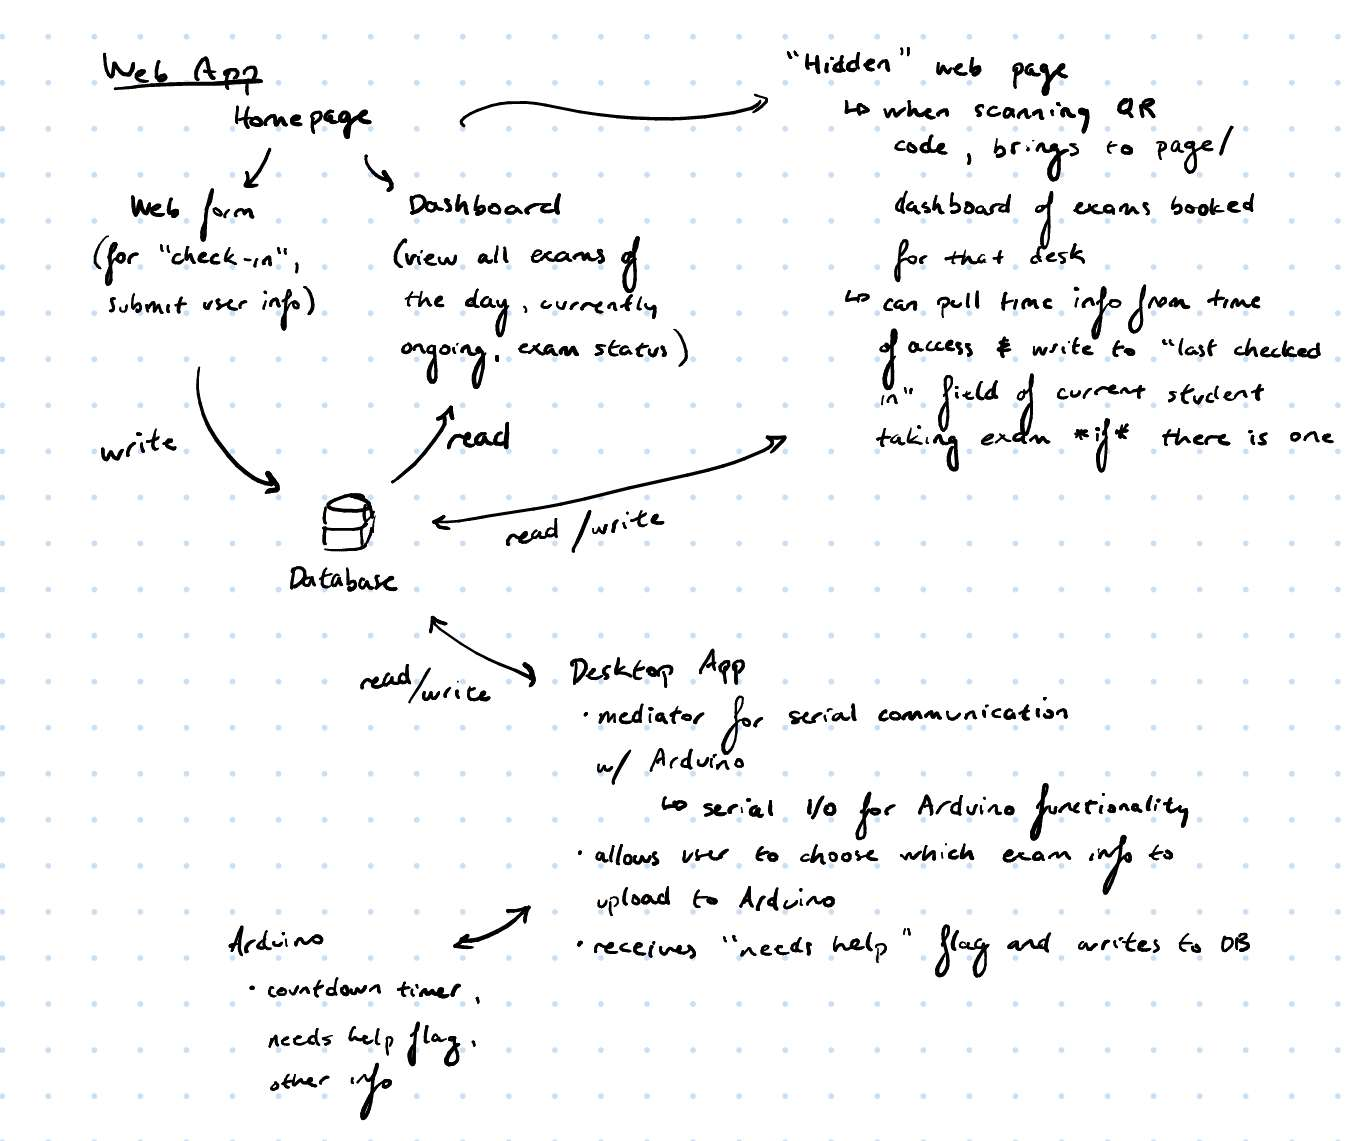 Web App
Homepage
Web form
(for "check-in",
submit user info)
Dashboard
(view all exams of
the day, currently
ongoing, exam status)
"Hidden" web page
↳ when scanning QR
code, brings to page/
dashboard of exams booked
for that desk
↳ can pull time info from time
of access & write to "last checked
in" field of current student
taking exam *if* there is one
write
read
read/write
Database
read/write
Desktop App
· mediator for serial communication
w/ Arduino
↳ serial I/O for Arduino functionality
· allows user to choose which exam info to
upload to Arduino
· receives "needs help" flag and writes to DB
Arduino
· countdown timer,
needs help flag,
other info